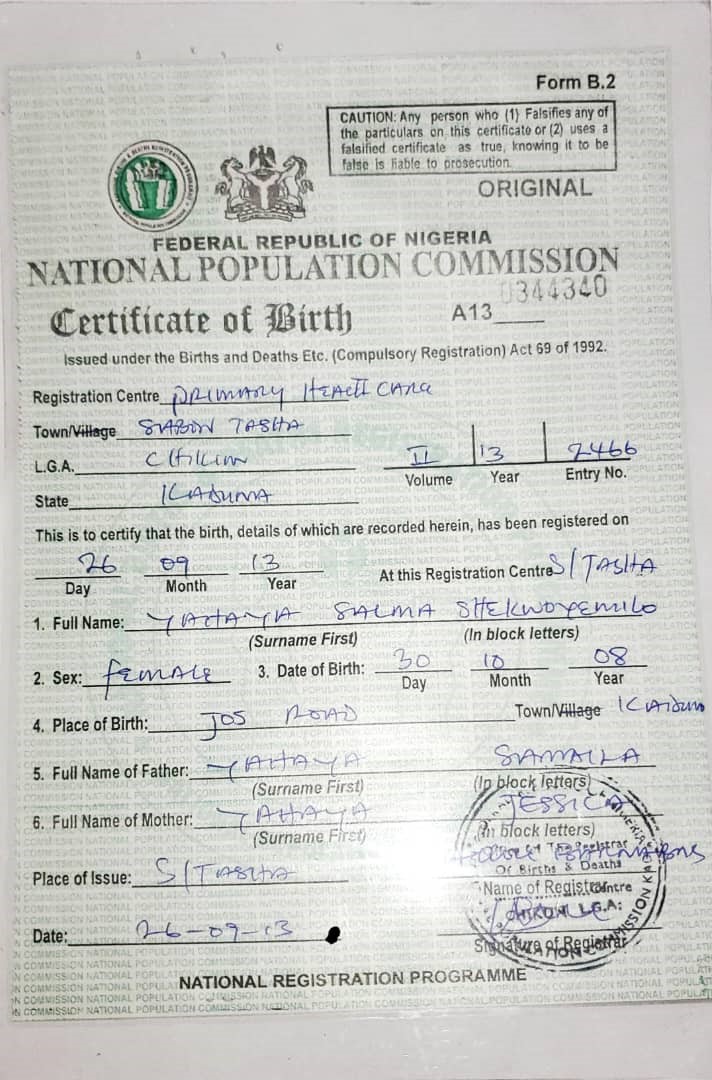 Form B.2
CAUTION: Any person who (1) Falsifies any of
the particulars on this certificate or (2) uses a
falsified certificate as true, knowing it to be
false is liable to prosecution.
ORIGINAL
FEDERAL REPUBLIC OF NIGERIA
NATIONAL POPULATION COMMISSION
0344340
Certificate of Birth A13
Issued under the Births and Deaths Etc. (Compulsory Registration) Act 69 of 1992.
Registration Centre PRIMARY HEALTH CARE
Town/Village SABON TASHA
L.G.A. CHIKUN II 13 2466
Volume Year Entry No.
State KADUNA
This is to certify that the birth, details of which are recorded herein, has been registered on
26 09 13 At this Registration Centre S/TASHA
Day Month Year
1. Full Name: YAHAYA SALMA
(Surname First) (In block letters)
2. Sex: FEMALE 3. Date of Birth: 30 10 08
Day Month Year
4. Place of Birth: JOS ROAD Town/Village KADUNA
5. Full Name of Father: YAHAYA SAMAILA
(Surname First) (In block letters)
6. Full Name of Mother: YAHAYA JESSICA
(Surname First) (In block letters)
Of Births & Deaths
Place of Issue: S/TASHA
Name of Registrar
CHIKUN L.G.A:
Date: 26-09-13
Signature of Registrar
NATIONAL REGISTRATION PROGRAMME